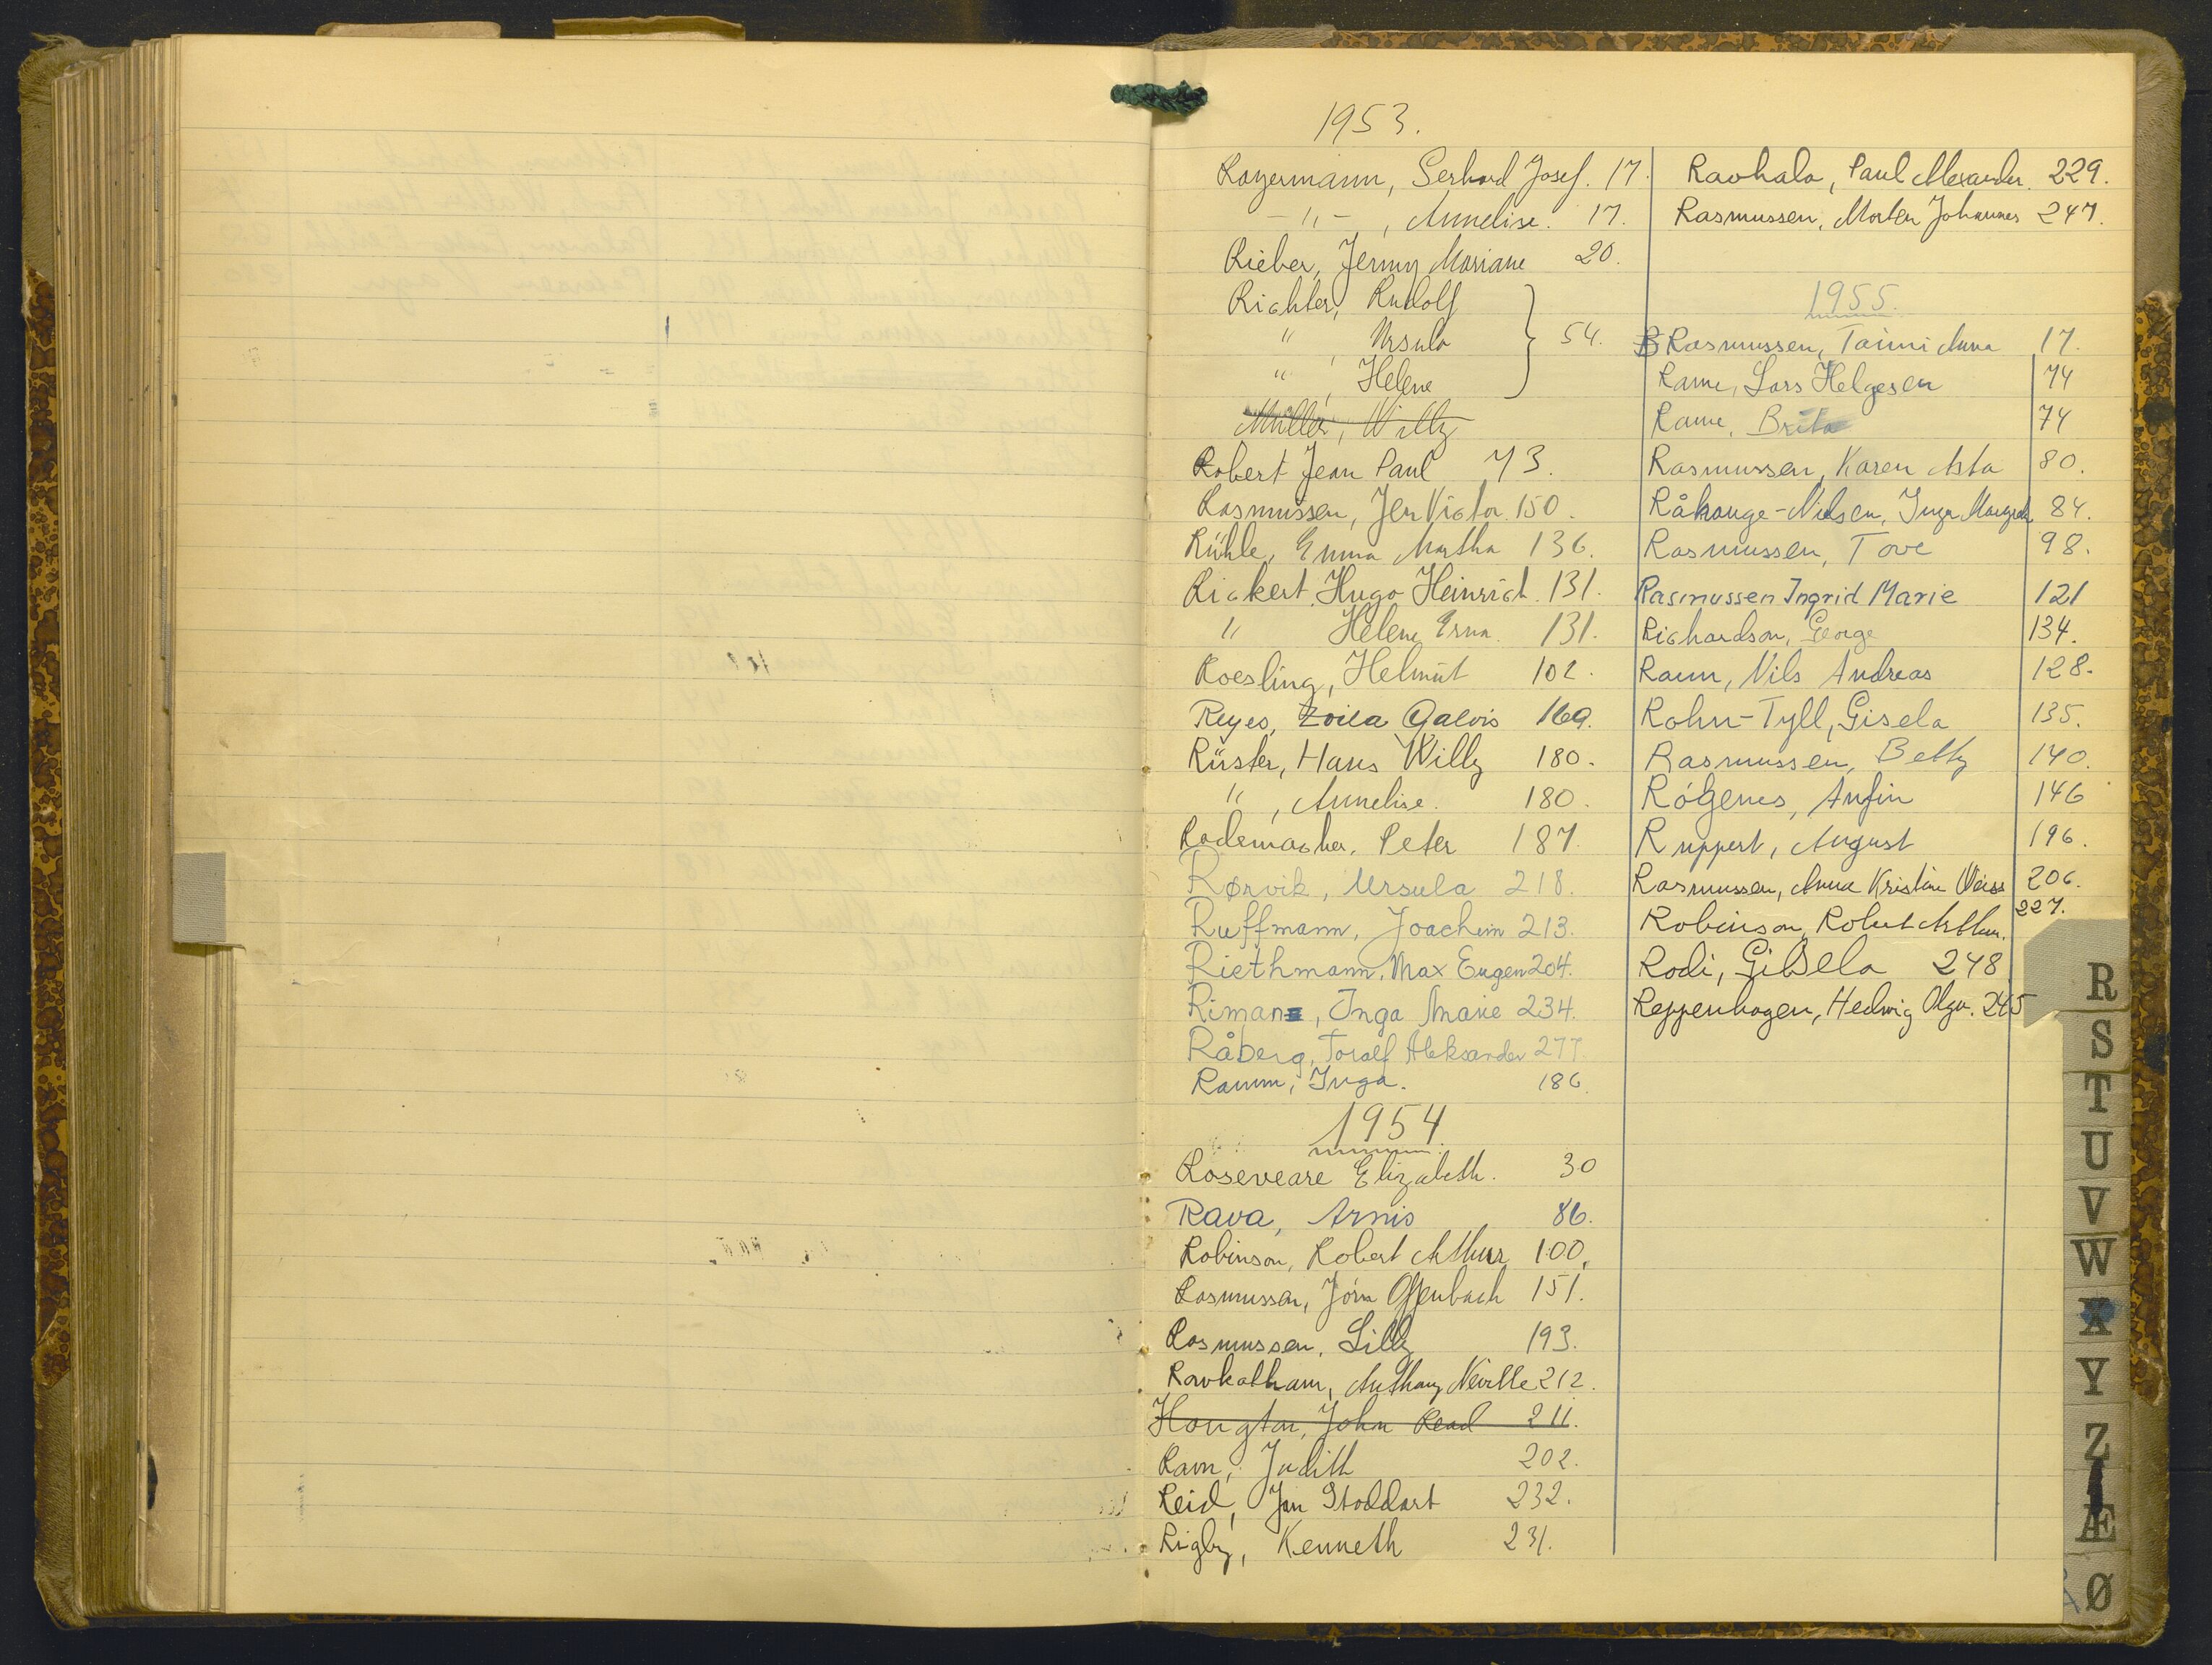 1953.
Rayermann, Gerhard Josef. 17.
- " - , Annelise. 17.
Rieber, Jenny Mariane 20.
Richter, Rudolf
" , Ursula } 54.
" , Helene
Müller, Willy
Robert Jean Paul 73.
Rasmussen, Jen Victor. 150.
Rühle, Emma Martha 136.
Rickert, Hugo Heinrich. 131.
" Helene Erna. 131.
Roesling, Helmut 102.
Reyes, Zoila Galvis 169.
Rüster, Hans Willy 180.
" , Annelise. 180.
Rademacher, Peter 187.
Rørvik, Ursula 218.
Ruffmann, Joachim 213.
Riethmann, Max Eugen 204.
Riman, Inga Marie 234.
Råberg, Toralf Aleksander 277.
Ramm, Inga. 186.
1954
Roseveare Elizabeth. 30
Rava, Arnio 86.
Robinson, Robert Arthur 100.
Rasmussen, Jörn Offenbach 151.
Rasmussen, Lilly 193.
Rowbatham, Anthony Neville 212.
Hougton, John Read 211.
Ravn, Judith 202.
Reid, Jan Stoddart 232.
Rigby, Kenneth 231.
Rauhala, Paul Alexander. 229.
Rasmussen, Morten Johannes 247.
1955.
Rasmussen, Taimi Anna 17.
Rame, Lars Helgesen 74
Rame, Brita 74
Rasmussen, Karen Asta 80.
Råhauge-Nielsen, Inga 84.
Rasmussen, Tove 98.
Rasmussen Ingrid Marie 121
Richardson, George 134.
Ravn, Nils Andreas 128.
Rohn-Tyll, Gisela 135.
Rasmussen, Betty 140.
Rógenes, Anfin 146
Ruppert, August 196.
Rasmussen, Anna Kristine Weiss 206.
Robinson, Robert Arthur. 227.
Rodi, Gisela 248
Reppenhagen, Hedwig Olga. 245
R
S
T
U
V
W
X
Y
Z
Æ
Ø